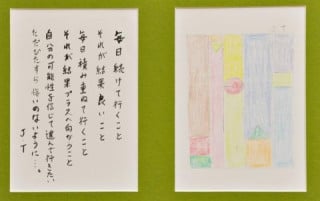 毎日続けて行くこと
それが結果良いこと
毎日積み重ねて行くこと
それが結果プラスへ向かうこと
自分の可能性を信じて進んで行きたい
ただひたすら悔いのないように…。
J.T